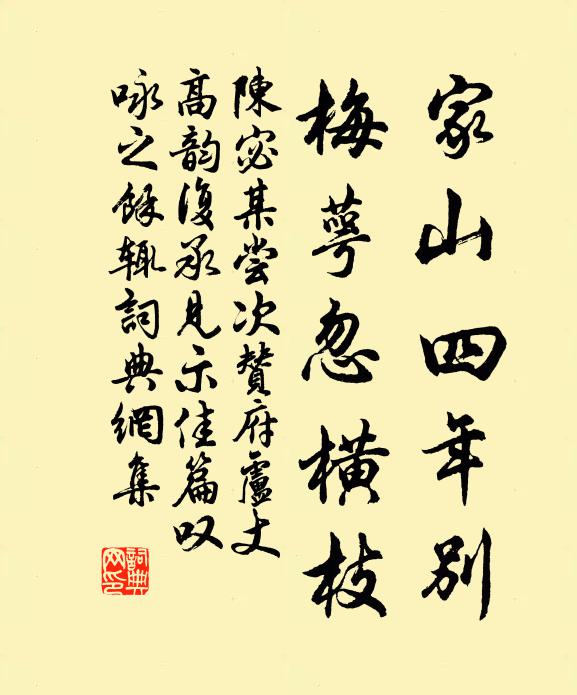 家山四年别
梅萼忽橫枝
陳宓某嘗次贊府盧丈
高韵復承見示佳篇叹
咏之餘輒詞典網集
詞典
网印